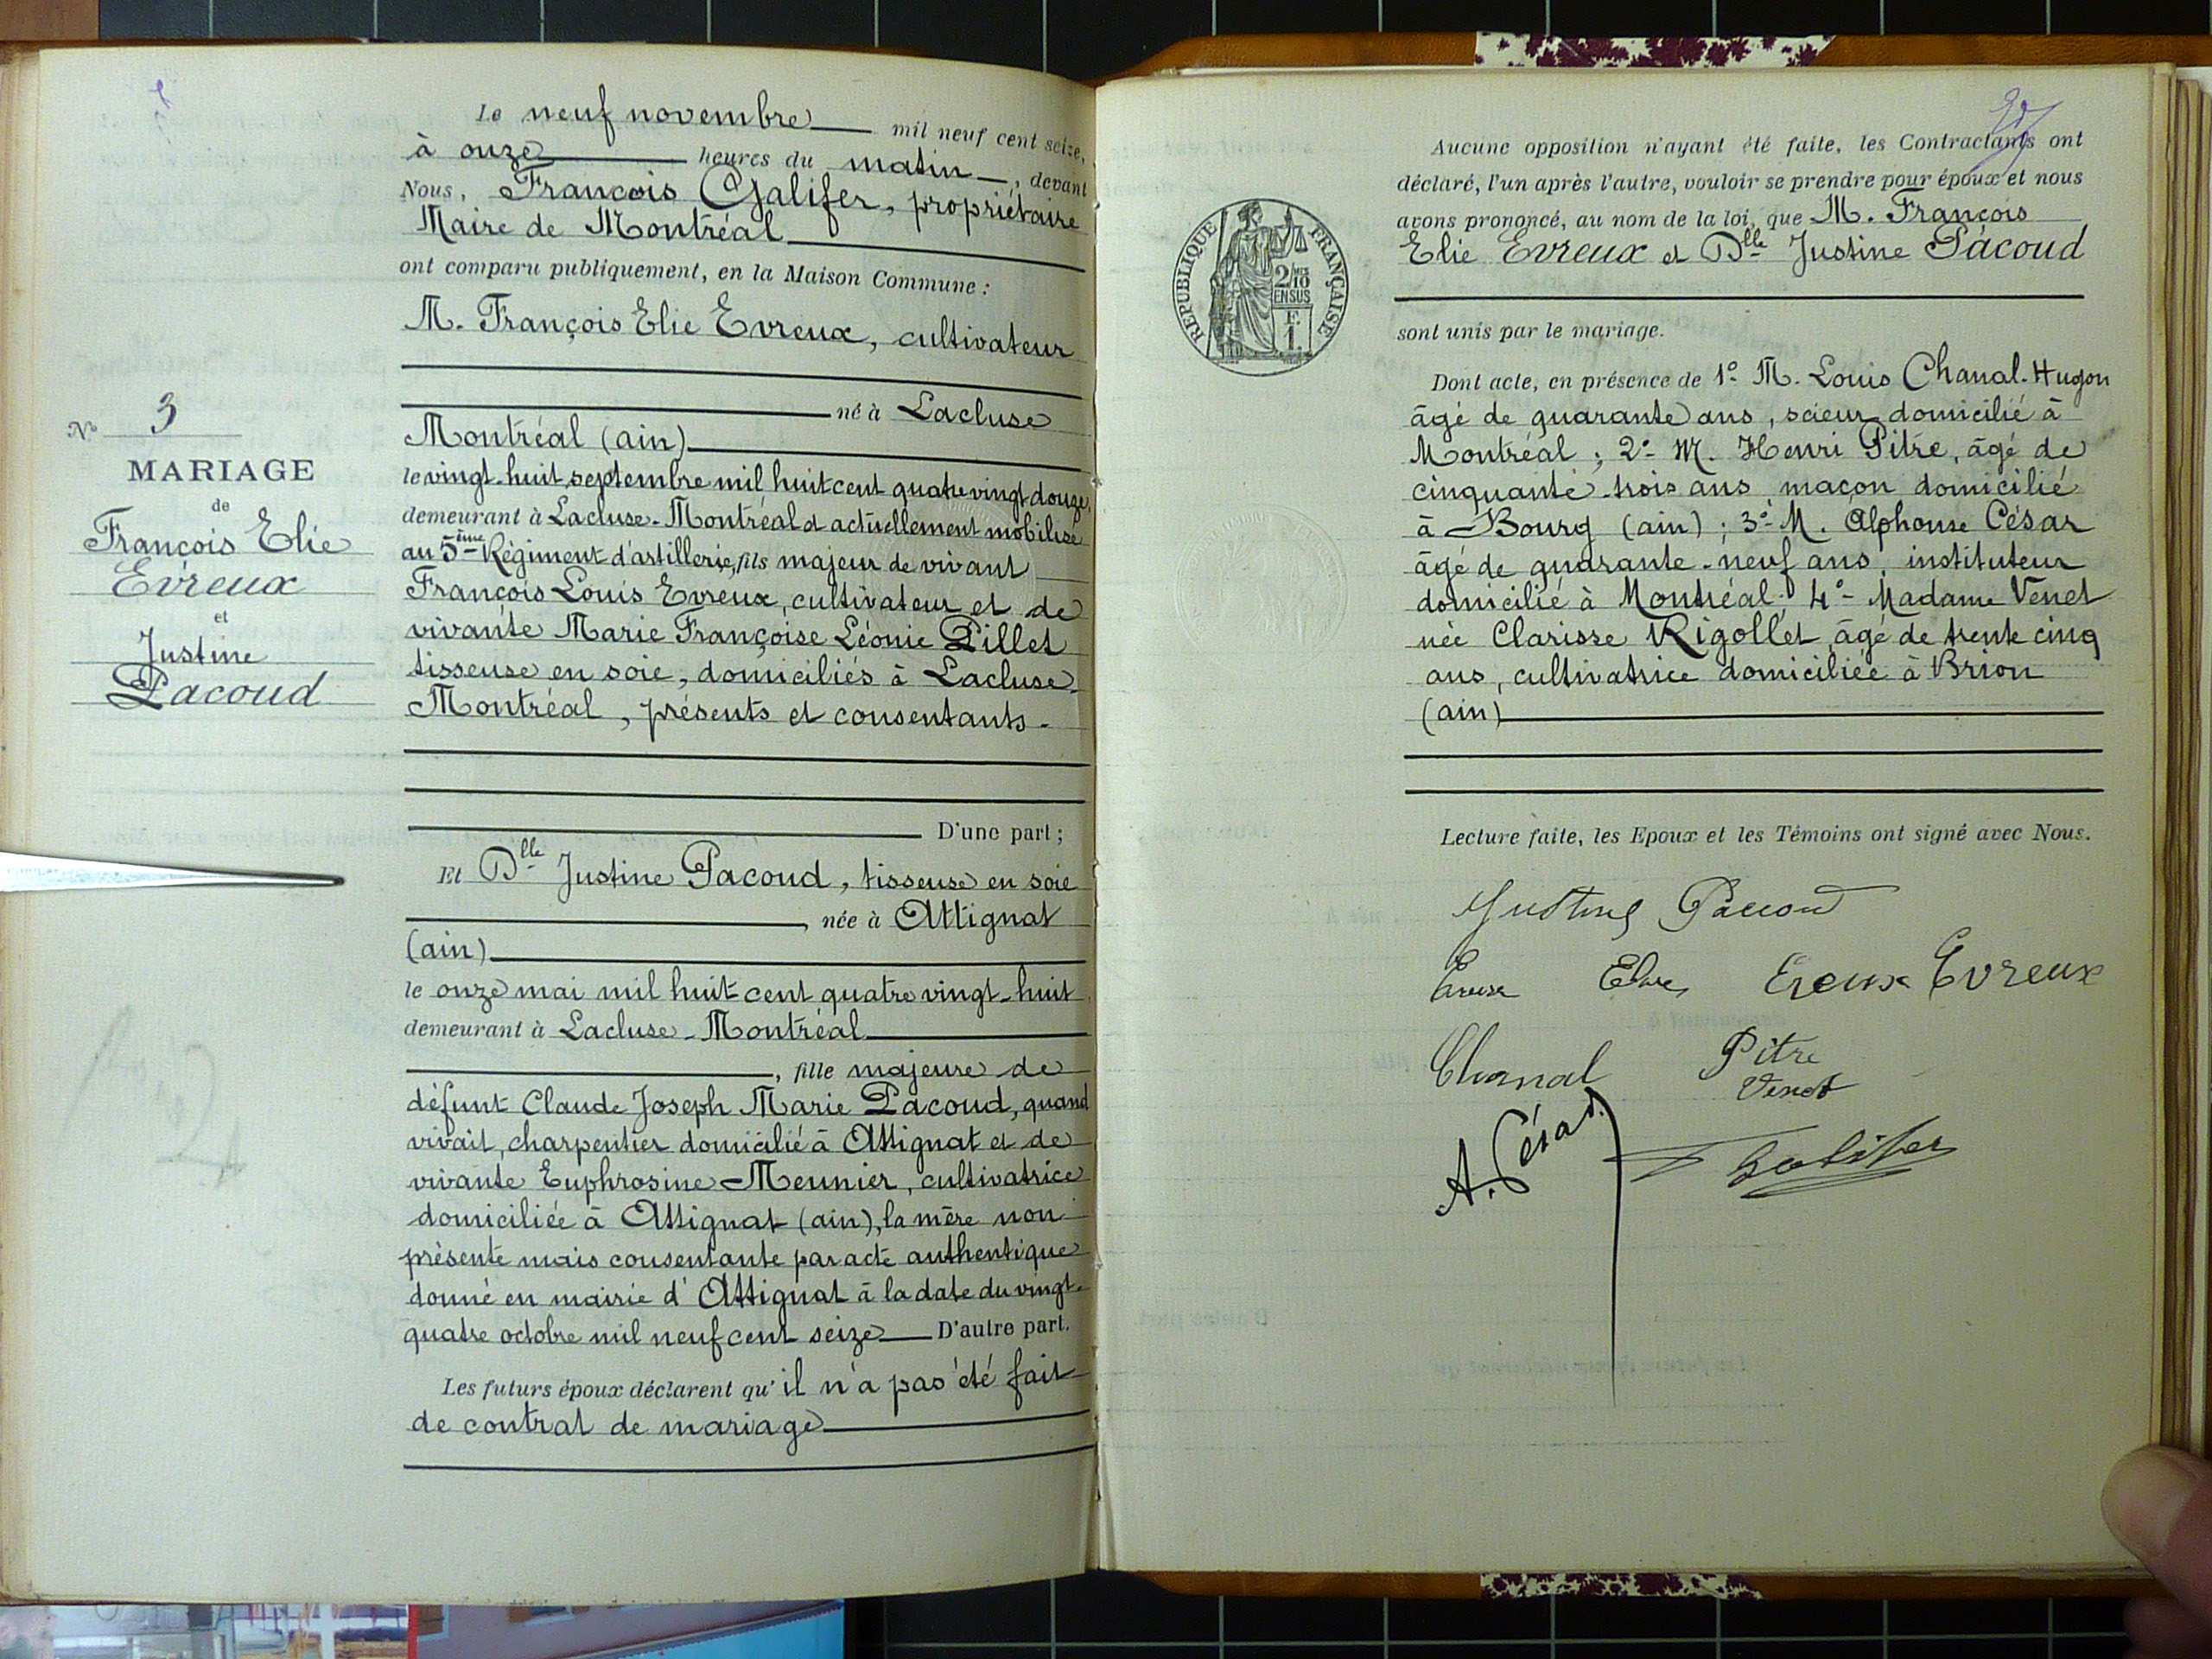 Le neuf novembre mil neuf cent seize,
à onze heures du matin, devant
Nous, François Galifer, propriétaire
Maire de Montréal
ont comparu publiquement, en la Maison Commune :
M. François Elie Evreux, cultivateur
né à Lacluse
Montréal (ain)
le vingt-huit septembre mil huit cent quatre vingt douze,
demeurant à Lacluse-Montréal et actuellement mobilisé
au 5ème Régiment d'artillerie, fils majeur de vivant
François Louis Evreux, cultivateur et de
vivante Marie Françoise Léonie Pillet
tisseuse en soie, domiciliés à Lacluse-
Montréal, présents et consentants.
D'une part ;
Et Dlle Justine Pacoud, tisseuse en soie
, née à Attignat
(ain)
le onze mai mil huit cent quatre vingt-huit
demeurant à Lacluse-Montréal
, fille majeure de
défunt Claude Joseph Marie Pacoud, quand
vivait, charpentier domicilié à Attignat et de
vivante Euphrosine Meunier, cultivatrice
domiciliée à Attignat (ain), la mère non
présente mais consentante par acte authentique
donné en mairie d'Attignat à la date du vingt-
quatre octobre mil neuf cent seize D'autre part.
Les futurs époux déclarent qu'il n'a pas été fait
de contrat de mariage
No 3
MARIAGE
de
François Elie
Evreux
et
Justine
Pacoud
Aucune opposition n'ayant été faite, les Contractants ont
déclaré, l'un après l'autre, vouloir se prendre pour époux et nous
avons prononcé, au nom de la loi, que M. François
Elie Evreux et Dlle Justine Pacoud
sont unis par le mariage.
REPUBLIQUE FRANÇAISE
2/10
EN SUS
F.
1.
Dont acte, en présence de 1° M. Louis Chanal-Hugon
âgé de quarante ans, scieur domicilié à
Montréal ; 2° M. Henri Pitre, âgé de
cinquante-trois ans, maçon domicilié
à Bourg (ain) ; 3° M. Alphonse César
âgé de quarante-neuf ans, instituteur
domicilié à Montréal ; 4° Madame Venet
née Clarisse Rigollet, âgé de trente cinq
ans, cultivatrice domiciliée à Brion
(ain)
Lecture faite, les Epoux et les Témoins ont signé avec Nous.
Justine Pacoud
Evreux
Chanal Pitre
Venet
A. César
F Galifer